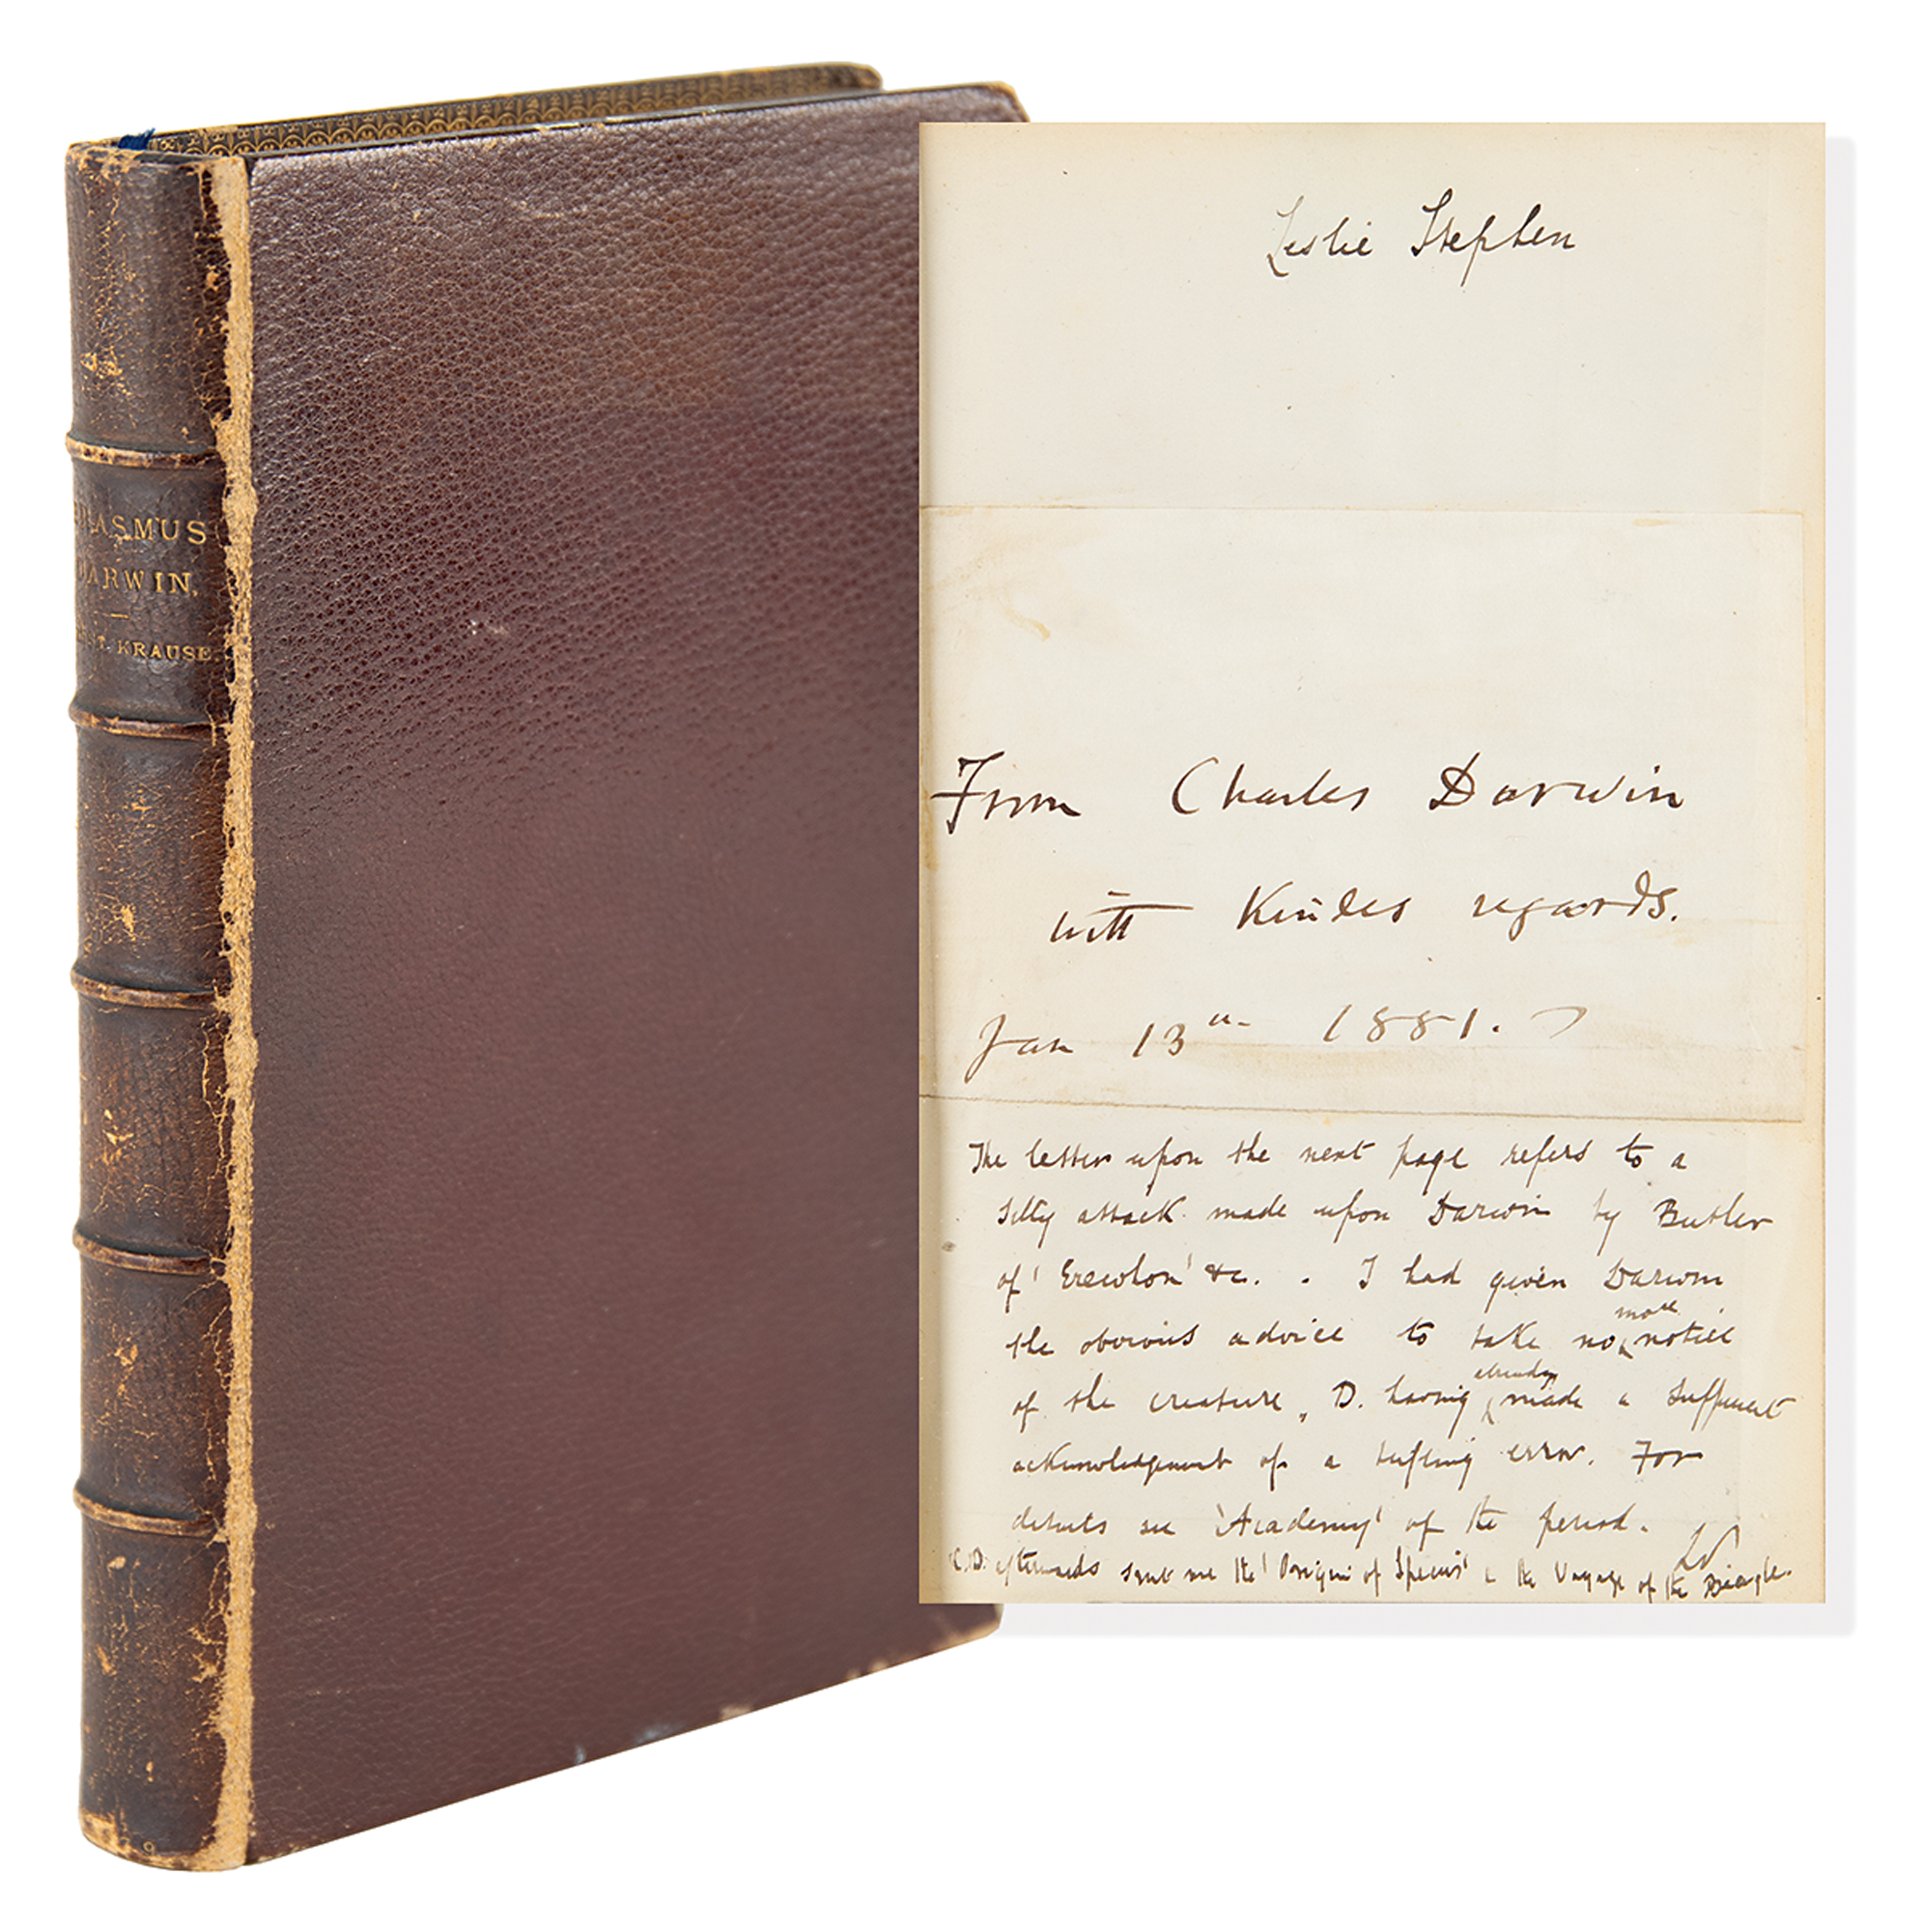 ERASMUS
DARWIN,
ERNST. KRAUSE.
Leslie Stephen
From Charles Darwin
with Kindest regards.
Jan 13th 1881.
The letter upon the next page refers to a
silly attack made upon Darwin by Butler
of 'Erewhon' &c. . I had given Darwin
more
the obvious advice to take no notice
already
of the creature, D. having made a sufficient
acknowledgement of a trifling error. For
details see 'Academy' of the period. LS
C.D. afterwards sent me the 'Origin of Species' & the Voyage of the Beagle.